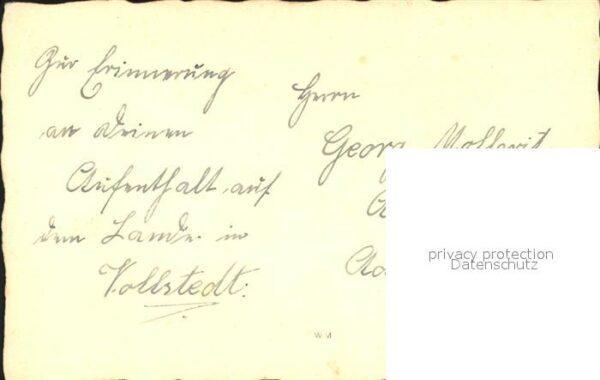 Zur Erinnerung
an Deinen
Aufenthalt auf
dem Lande in
Vollstedt.
Herrn
Georg
privacy protection
Datenschutz
W M